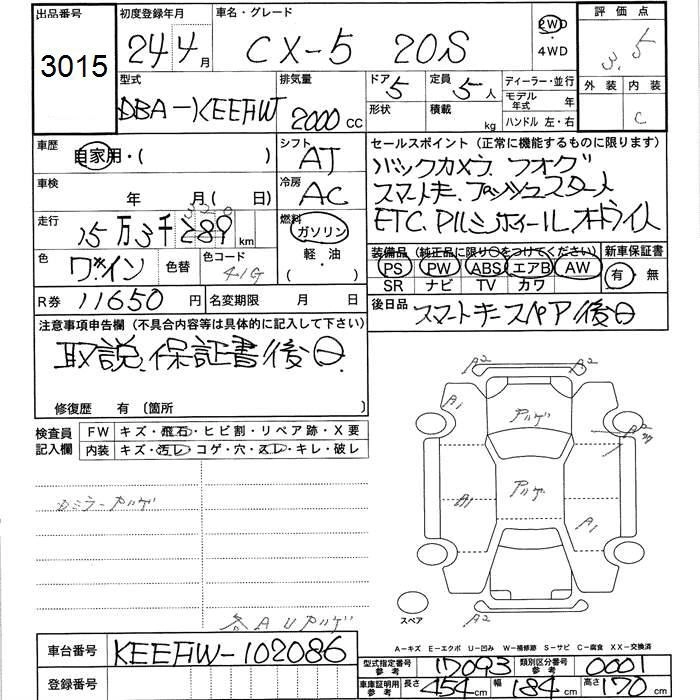 出品番号 初度登録年月 車名・グレード 評価点
3015 24年4月 CX-5 20S 2WD・4WD 3.5
型式 排気量 ドア 5 定員 5人 ディーラー・並行 外装 内装
形状 積載 kg モデル年式 年
DBA-KEEFW 2000cc ハンドル 左・右 C
車歴 シフト セールスポイント(正常に機能するものに限ります)
自家用・( ) AT バックカメラ フォグ
車検 年 月(日) 冷房 AC スマートキー プッシュスタート
走行 15万3千 km 燃料 ガソリン ETC
軽・油 ( )
色 ワイン 色替 色コード 41G
装備品(純正品に限り○をつけてください) 新車保証書
PS PW ABS エアB AW 有・無
SR ナビ TV カワ
R券 11650円 名変期限 月 日
後日品 スマートキースペア後日
注意事項申告欄(不具合内容等は具体的に記入して下さい)
取説、保証書後日
修復歴 有〔箇所 〕
検査員記入欄 FW キズ・飛石・ヒビ割・リペア跡・X要
内装 キズ・汚レ・コゲ・穴・スレ・キレ・破レ
A2 A2
A1 アルゲ
ミラー アルゲ
アルゲ
A1 A1
スペア A2
各AUアルゲ
A−キズ E−エクボ U−凹み W−補修跡 S−サビ C−腐食 XX−交換済
車台番号 KEEFW-102086
型式指定番号 参考 17093 類別区分番号 参考 0001
登録番号
車庫証明用 参考 長さ 454cm 幅 184cm 高さ 170cm